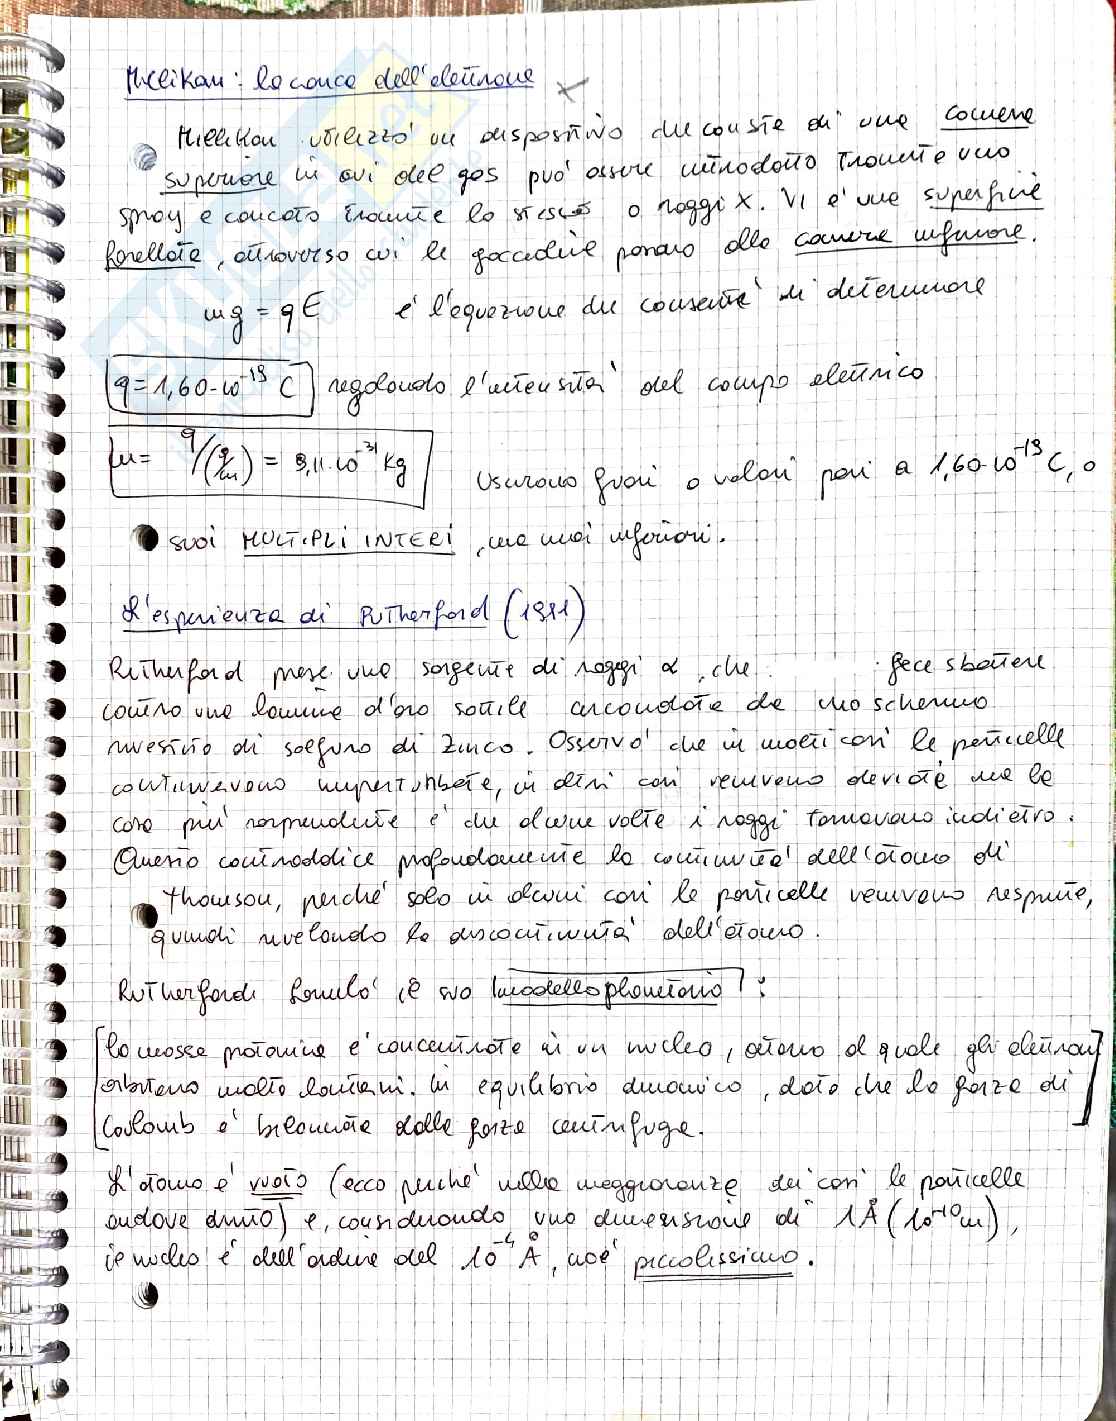 Millikan: la carica dell'elettrone
Millikan utilizzò un dispositivo che consta di una camera
superiore in cui del gas può essere introdotto tramite uno
spray e caricato tramite lo stesso o raggi X. Vi è una superficie
forellata, attraverso cui le goccioline passano alla camera inferiore.
mg = qE è l'equazione che consente di determinare
q = 1,60·10⁻¹⁹ C regolando l'intensità del campo elettrico
m = q/(q/m) = 9,11·10⁻³¹ Kg
Uscirono fuori o valori pari a 1,60·10⁻¹⁹ C, o
suoi MULTIPLI INTERI, ma mai inferiori.
L'esperienza di Rutherford (1911)
Rutherford prese una sorgente di raggi α, che fece sbattere
contro una lamina d'oro sottile circondata da uno schermo
rivestito di solfuro di zinco. Osservò che in molti casi le particelle
continuavano imperturbate, in altri casi venivano deviate ma la
cosa più sorprendente è che alcune volte i raggi tornavano indietro.
Questo contraddice profondamente la continuità dell'atomo di
Thomson, perché solo in alcuni casi le particelle venivano respinte,
quindi rivelando la discontinuità dell'atomo.
Rutherford formulò il suo modello planetario:
la massa protonica è concentrata in un nucleo, attorno al quale gli elettroni
orbitano molto lontani. In equilibrio dinamico, dato che la forza di
Coulomb è bilanciata dalla forza centrifuga.
L'atomo è vuoto (ecco perché nella maggioranza dei casi le particelle
andavano dritto) e, considerando una dimensione di 1Å (10⁻¹⁰m),
il nucleo è dell'ordine del 10⁻⁴ Å, cioè piccolissimo.